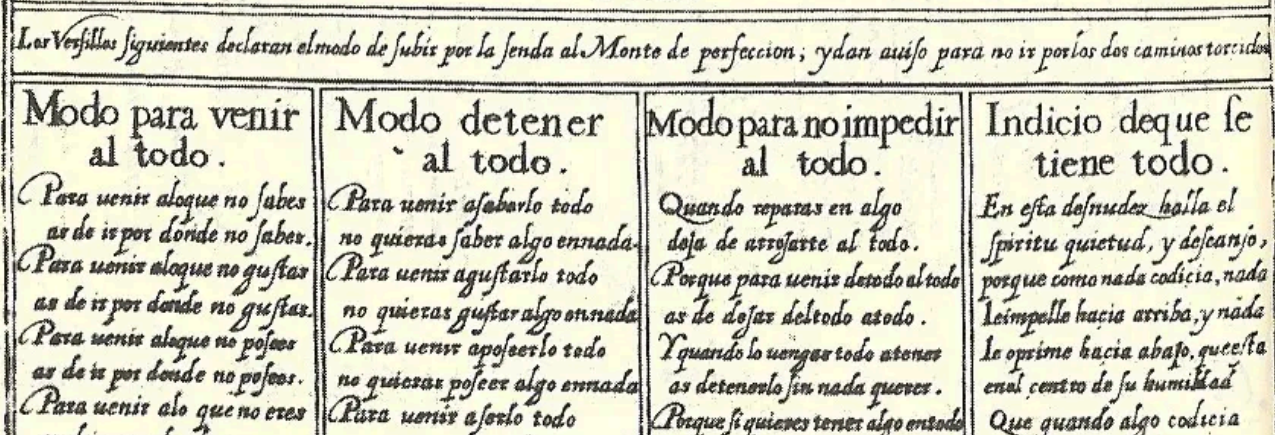 Los Versillos siguientes declaran el modo de subir por la senda al Monte de perfeccion; y dan auiso para no ir por los dos caminos torcidos
Modo para venir
al todo.
Para uenir aloque no sabes
as de ir por donde no sabes.
Para uenir aloque no gustas
as de ir por donde no gustas.
Para uenir aloque no posees
as de ir por donde no posees.
Para uenir alo que no eres
Modo detener
al todo.
Para uenir asaberlo todo
no quieras saber algo ennada.
Para uenir agustarlo todo
no quieras gustar algo ennada
Para uenir aposeerlo todo
no quieras poseer algo ennada
Para uenir aserlo todo
Modo para no impedir
al todo.
Quando reparas en algo
dejas de arrojarte al todo.
Porque para uenir detodo al todo
as de dejar deltodo atodo.
Y quando lo uengas todo atener
as detenerlo sin nada querer.
Porque si quieres tener algo entodo
Indicio deque se
tiene todo.
En esta desnudez halla el
spiritu quietud, y descanso,
porque como nada codicia, nada
le impelle hacia arriba, y nada
le oprime hacia abajo, que esta
enel centro de su humildad
Que quando algo codicia